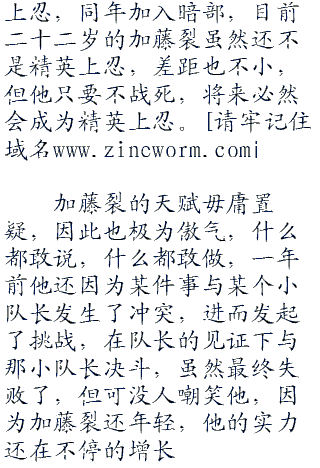 上忍，同年加入暗部，目前
二十二岁的加藤裂虽然还不
是精英上忍，差距也不小，
但他只要不战死，将来必然
会成为精英上忍。[请牢记住
域名www.zincworm.com|
加藤裂的天赋毋庸置
疑，因此也极为傲气，什么
都敢说，什么都敢做，一年
前他还因为某件事与某个小
队长发生了冲突，进而发起
了挑战，在队长的见证下与
那小队长决斗，虽然最终失
败了，但可没人嘲笑他，因
为加藤裂还年轻，他的实力
还在不停的增长